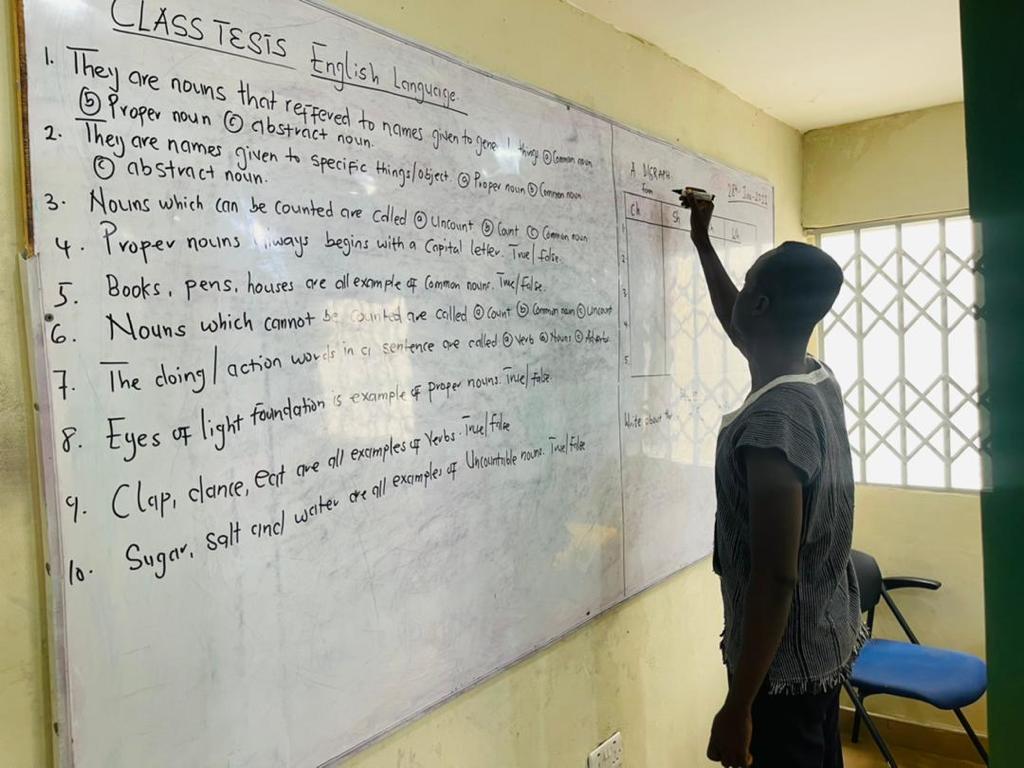 CLASS TESTS English Language
1. They are nouns that reffered to names given to things ⓐ Common noun
ⓑ Proper noun ⓒ abstract noun.
2. They are names given to specific things/object. ⓐ Proper noun ⓑ Common noun
ⓒ abstract noun.
3. Nouns which can be counted are called ⓐ Uncount ⓑ Count ⓒ Common noun
4. Proper nouns always begins with a Capital letter. True/false.
5. Books, pens, houses are all example of Common nouns. True/false.
6. Nouns which cannot be counted are called ⓐ Count ⓑ Common noun ⓒ Uncount
7. The doing/action words in a sentence are called ⓐ Verb ⓑ Nouns ⓒ Adverbs
8. Eyes of light foundation is example of proper nouns. True/false.
9. Clap, dance, eat are all examples of Verbs. True/false
10. Sugar, salt and water are all examples of Uncountable nouns. True/false
A DIGRAPH
form
Ch Sh
1
2
3
4
5
Write about the